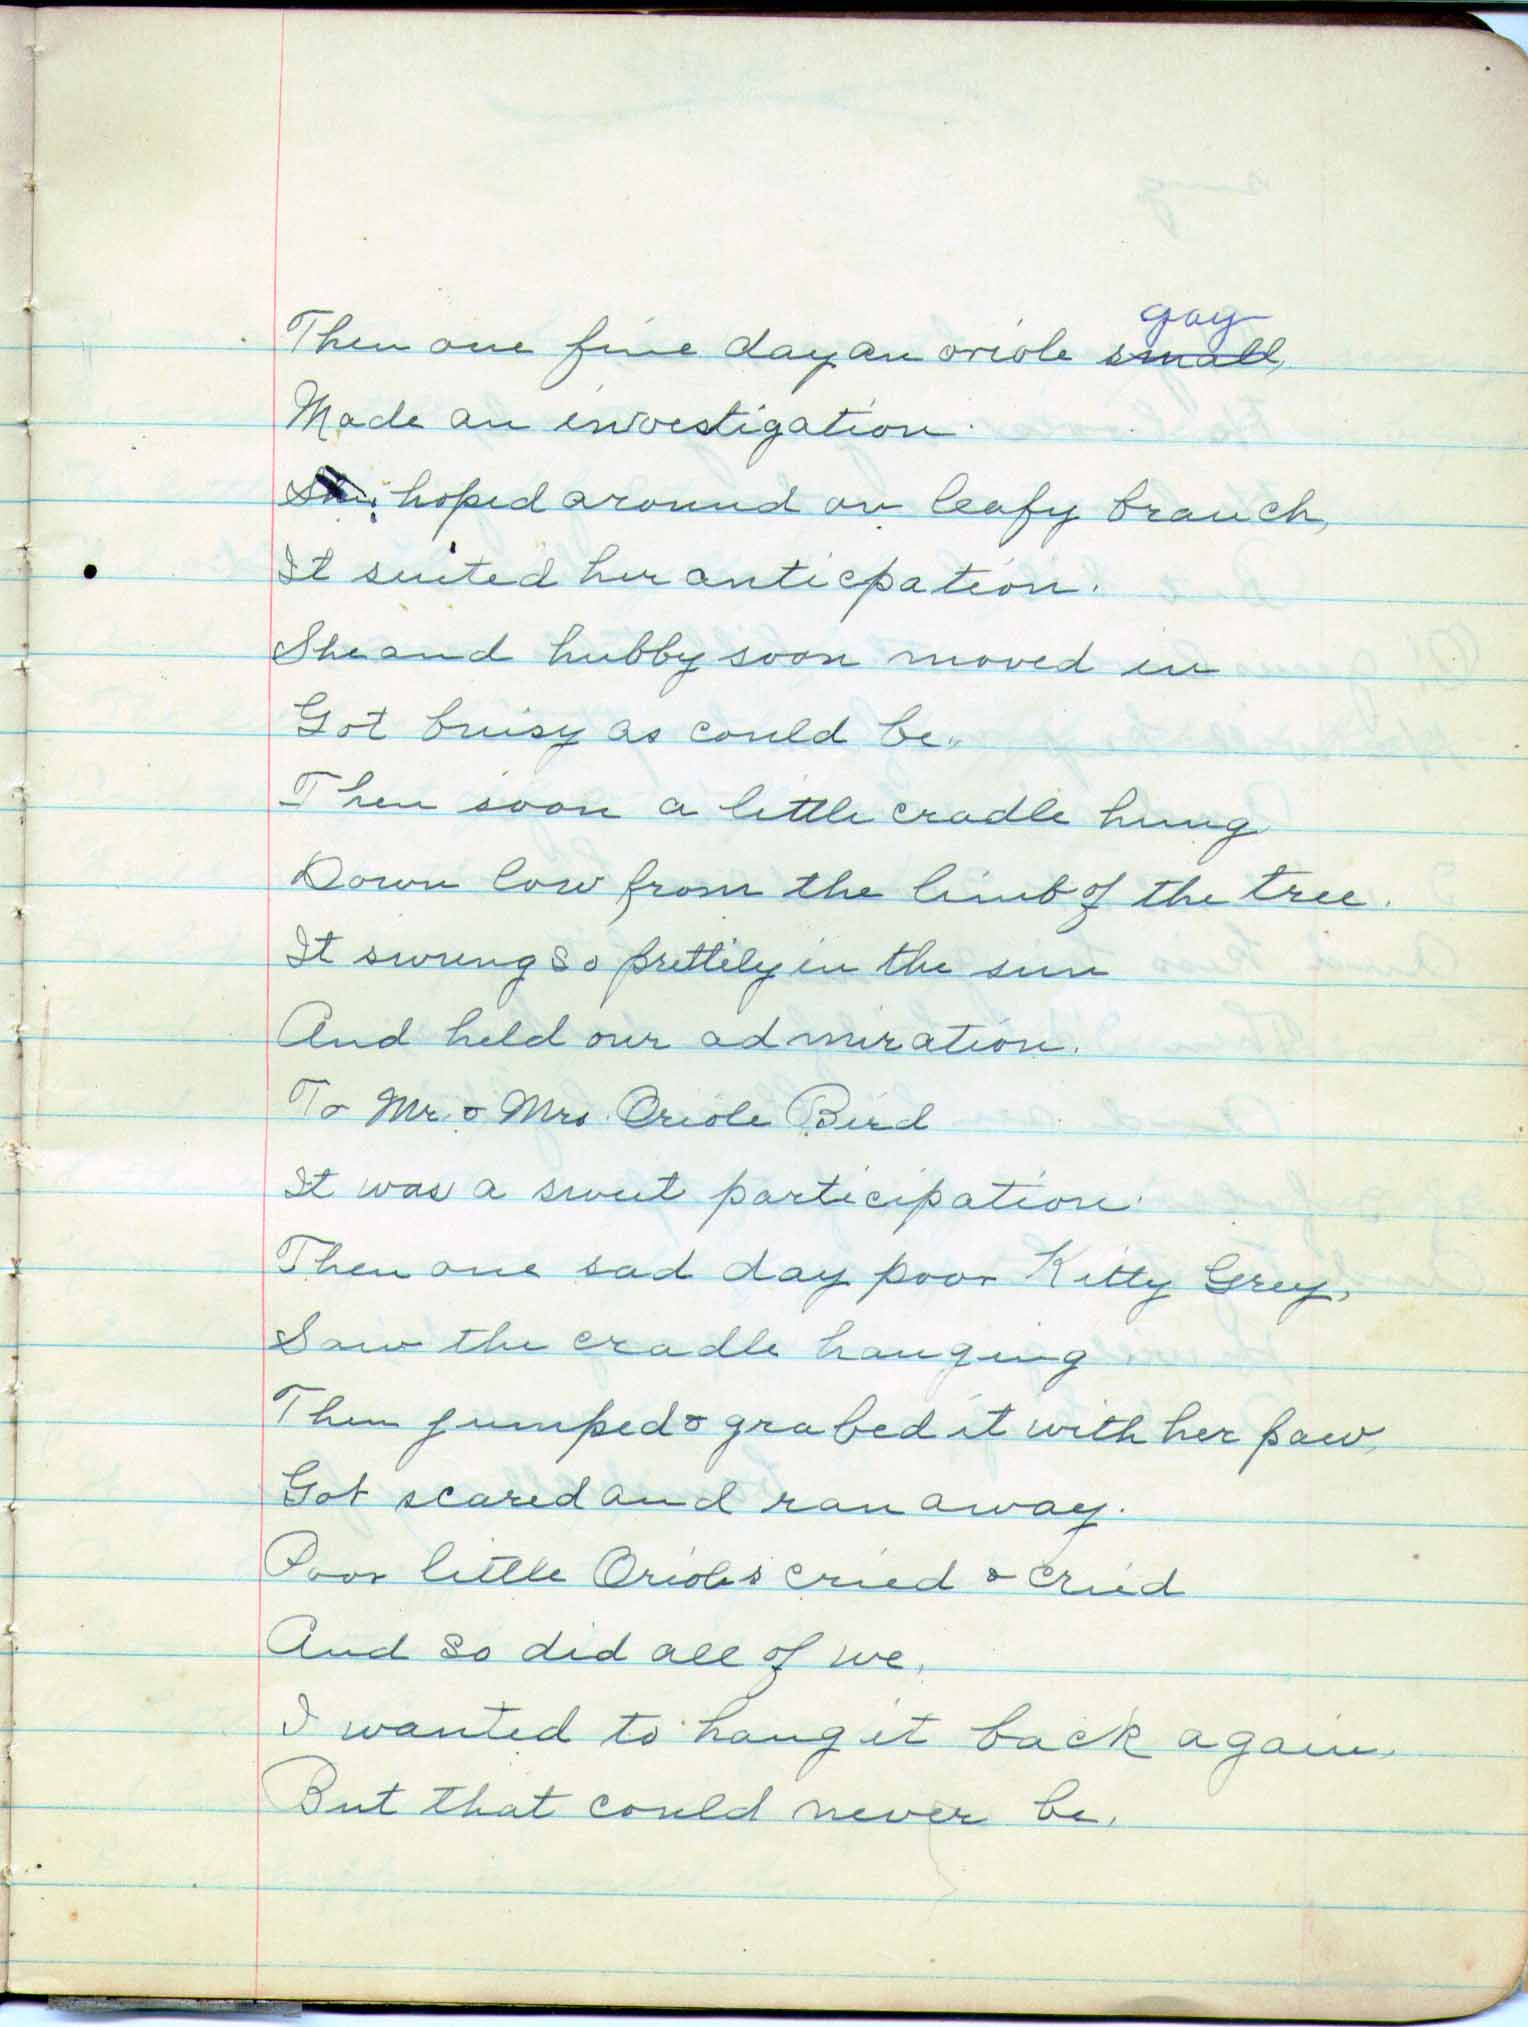 Then one fine day an oriole small, gay
Made an investigation.
She hoped around on leafy branch,
It suited her anticpation.
She and hubby soon moved in
Got buisy as could be.
Then soon a little cradle hung
Down low from the limb of the tree.
It swung so prettily in the sun
And held our admiration.
To Mr. & Mrs. Oriole Bird
It was a sweet participation.
Then one sad day poor Kitty Grey,
Saw the cradle hanging
Then jumped & grabed it with her paw,
Got scared and ran away.
Poor little Orioles cried & cried
And so did all of we.
I wanted to hang it back again,
But that could never be.